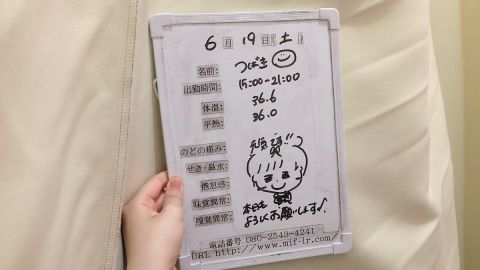 6月19日(土)
名前: つばき
出勤時間: 15:00-21:00
体温: 36.6
平熱: 36.0
のどの痛み:
せき・鼻水:
倦怠感:
味覚異常:
嗅覚異常:
本日も
よろしくお願いします♪
電話番号 080-2543-4241
URL http://www.mif-lr.com/